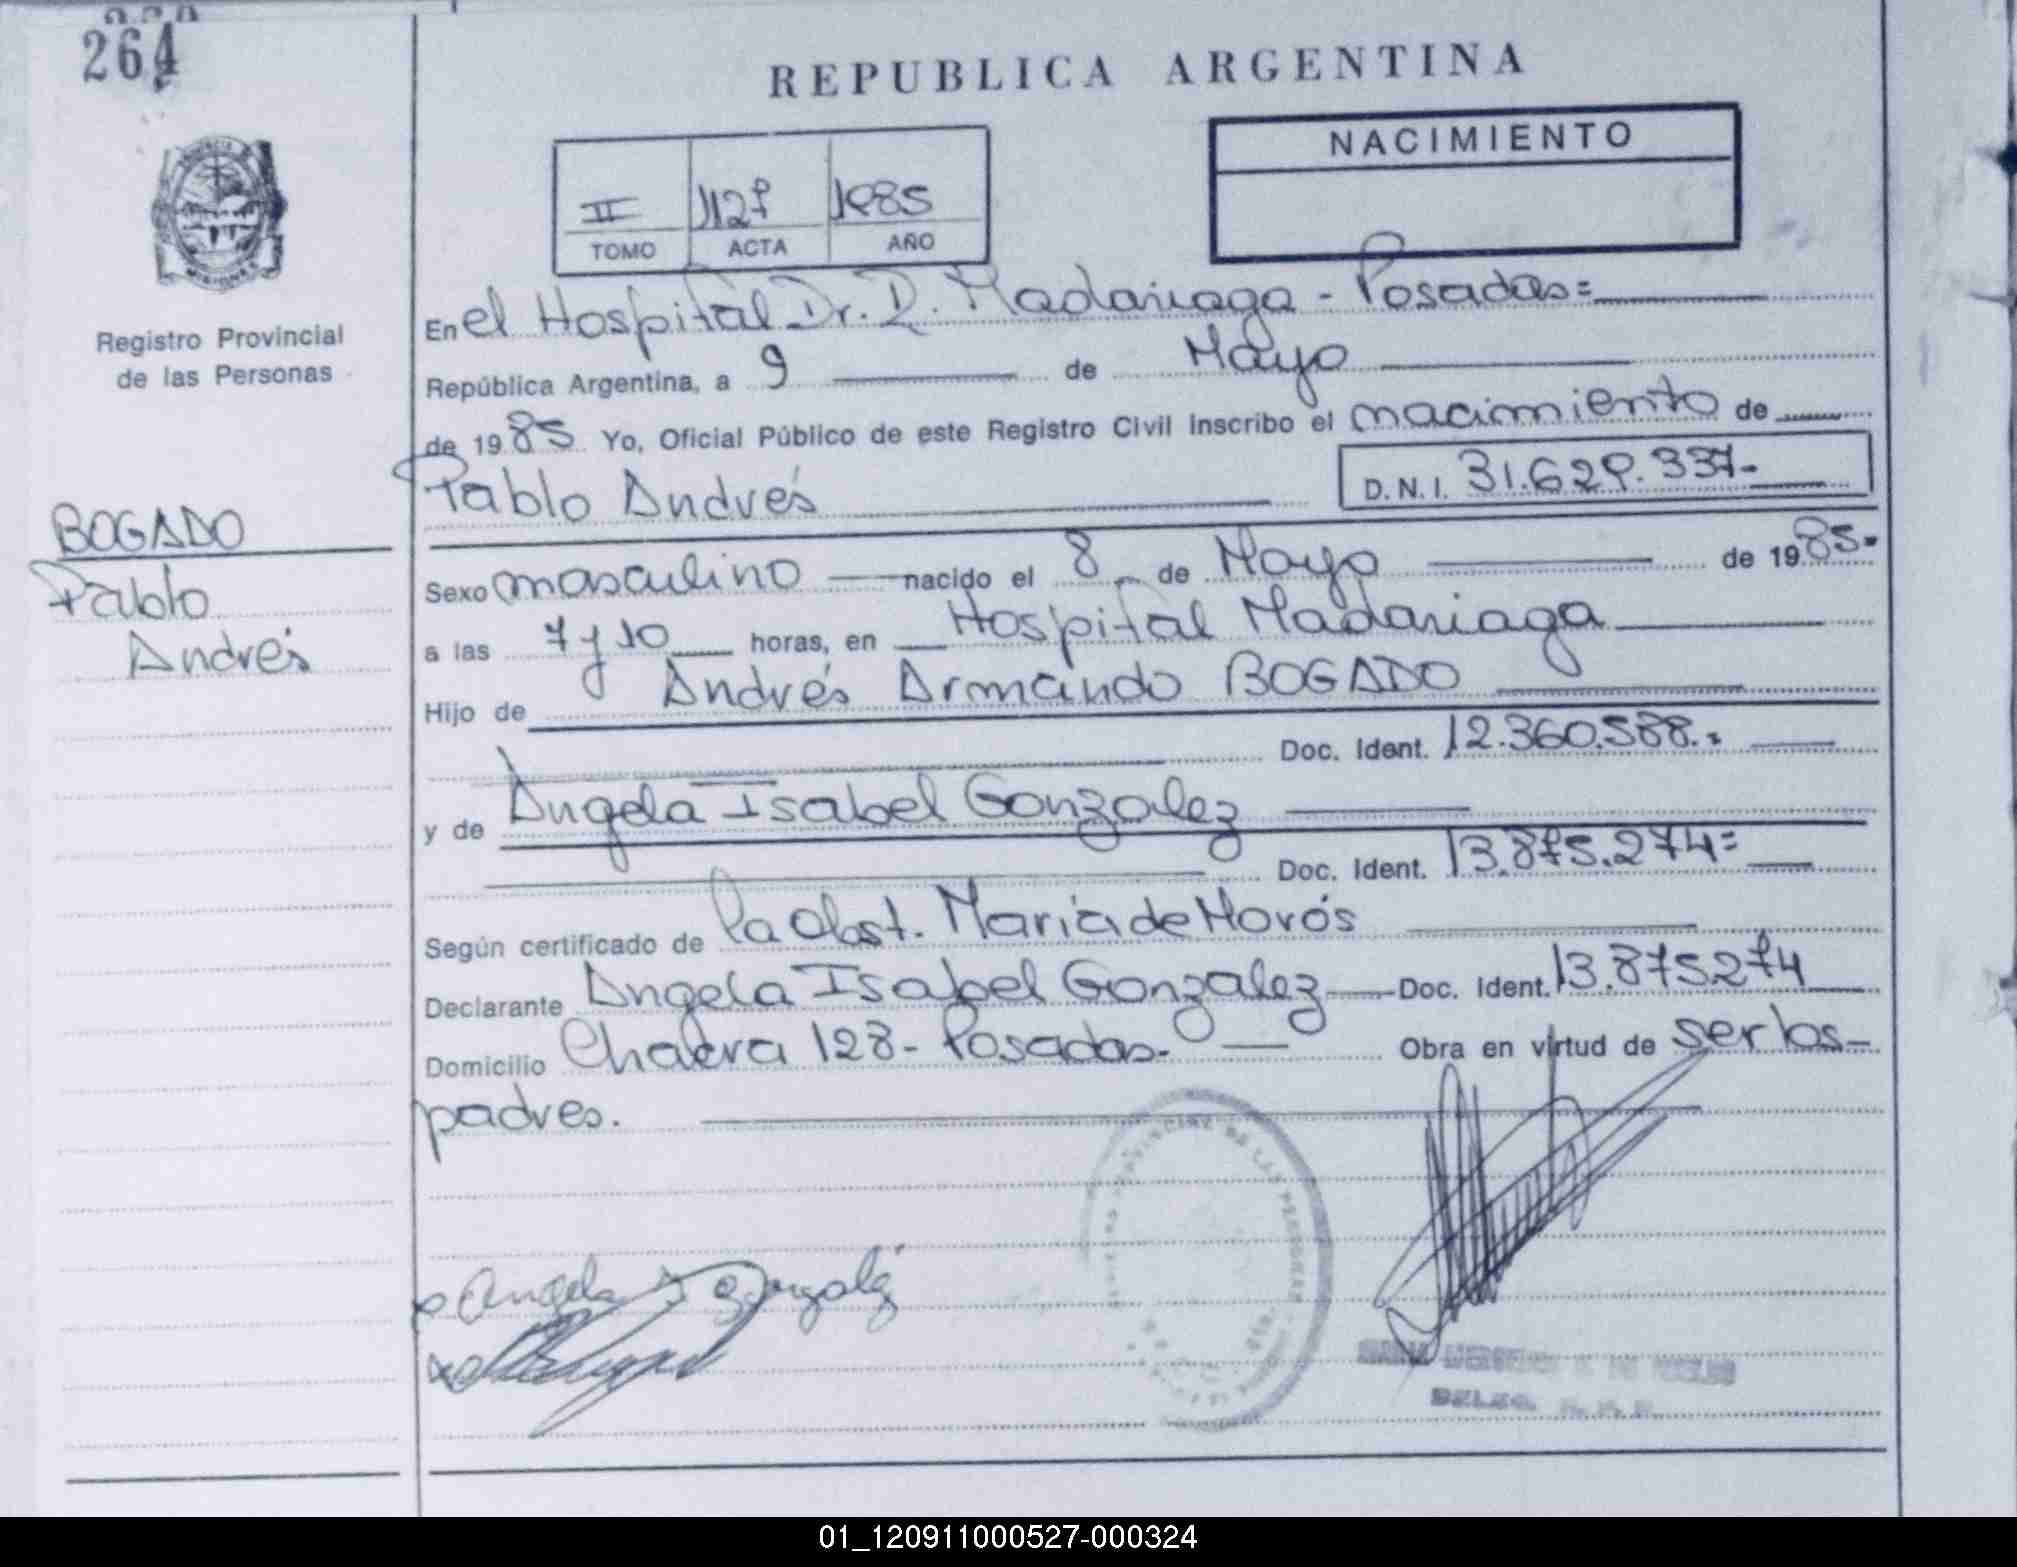 264
REPUBLICA ARGENTINA
NACIMIENTO
II 1127 1985
TOMO ACTA AÑO
Registro Provincial
de las Personas
BOGADO
Pablo
Andrés
En el Hospital Dr. R. Madariaga - Posadas=
República Argentina, a 9 de Mayo
de 1985 Yo, Oficial Público de este Registro Civil Inscribo el nacimiento de
Pablo Andrés D.N.I. 31.629.337-
Sexo masculino nacido el 8 de Mayo de 1985-
a las 7 y 10 horas, en Hospital Madariaga
Hijo de Andrés Armando BOGADO
Doc. Ident. 12.360.588.-
y de Angela Isabel Gonzalez
Doc. Ident. 13.875.274=
Según certificado de la Obst. María de Morós
Declarante Angela Isabel Gonzalez Doc. Ident. 13.875274
Domicilio Chacra 128- Posadas- Obra en virtud de ser los-
padres.
Angela I Gonzalez
01_120911000527-000324